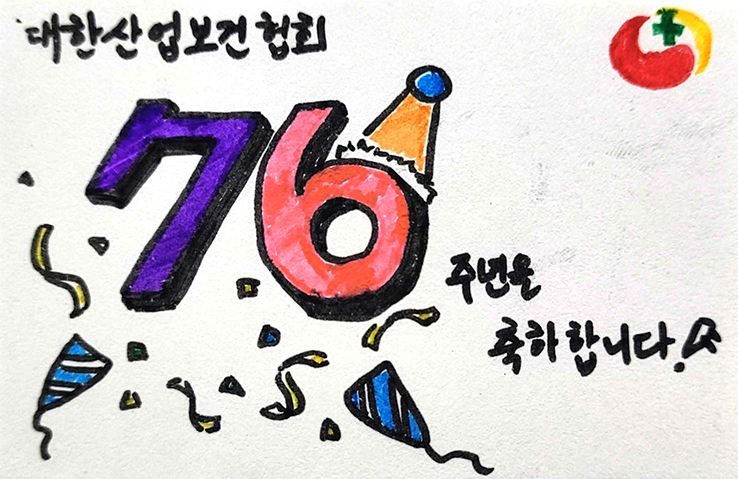 대한산업보건협회
76
주년을
축하합니다!